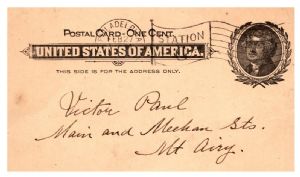 POSTAL CARD - ONE CENT.
UNITED STATES OF AMERICA.
THIS SIDE IS FOR THE ADDRESS ONLY.
STATION
Victor Paul
Main and Meehan Sts.
Mt Airy.